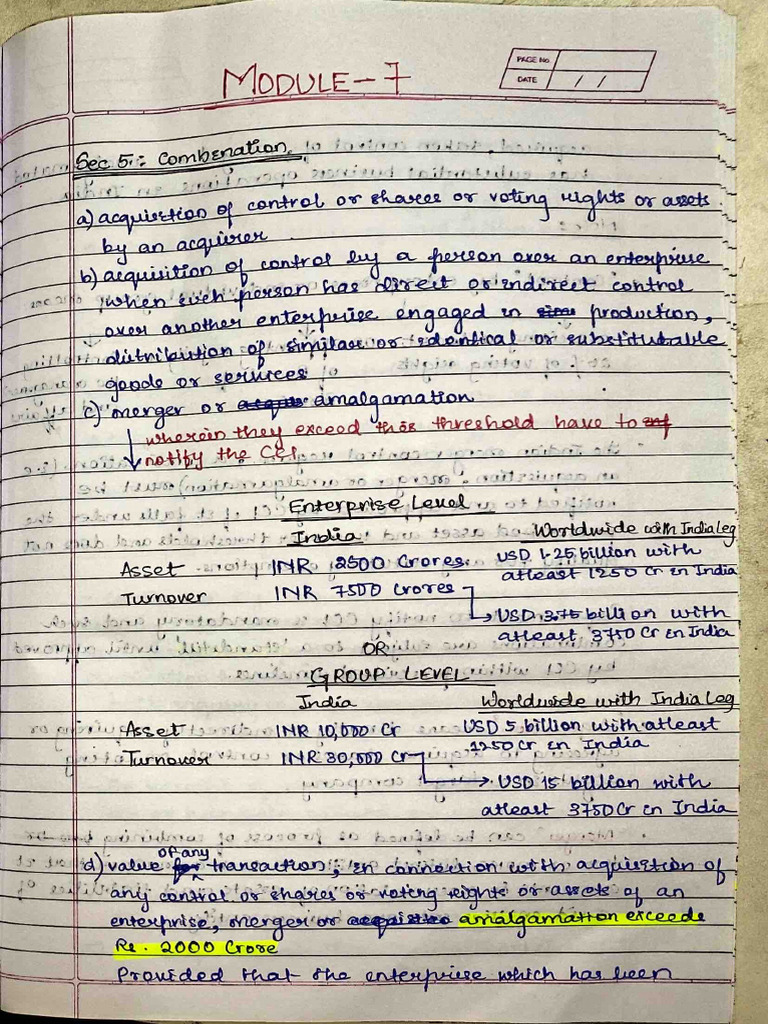 MODULE-7
PAGE No.
DATE / /
Sec 5: Combenation.
a) acquisition of control or shares or voting rights or assets
by an acquirer
b) acquisition of control by a person over an enterprise
when such person has direct or indirect control
over another enterprise engaged in production,
distribution of similar or identical or substitutable
goods or services
c) merger or amalgamation
wherein they exceed this threshold have to
notify the CCI
Enterprise Level
India Worldwide with India leg
Asset INR 2500 Crores USD 1.25 billion with
atleast 1250 Cr in India
Turnover INR 7500 Crores
USD 3.75 billion with
atleast 3750 Cr in India
OR
GROUP LEVEL
India Worldwide with India Leg
Asset INR 10,000 Cr USD 5 billion with atleast
1250 Cr in India
Turnover INR 30,000 Cr
USD 15 billion with
atleast 3750 Cr in India
d) value of any transaction, in connection with acquisition of
any control or shares or voting rights or assets of an
enterprise, merger or amalgamation exceeds
Rs. 2000 Crore
Provided that the enterprise which has been